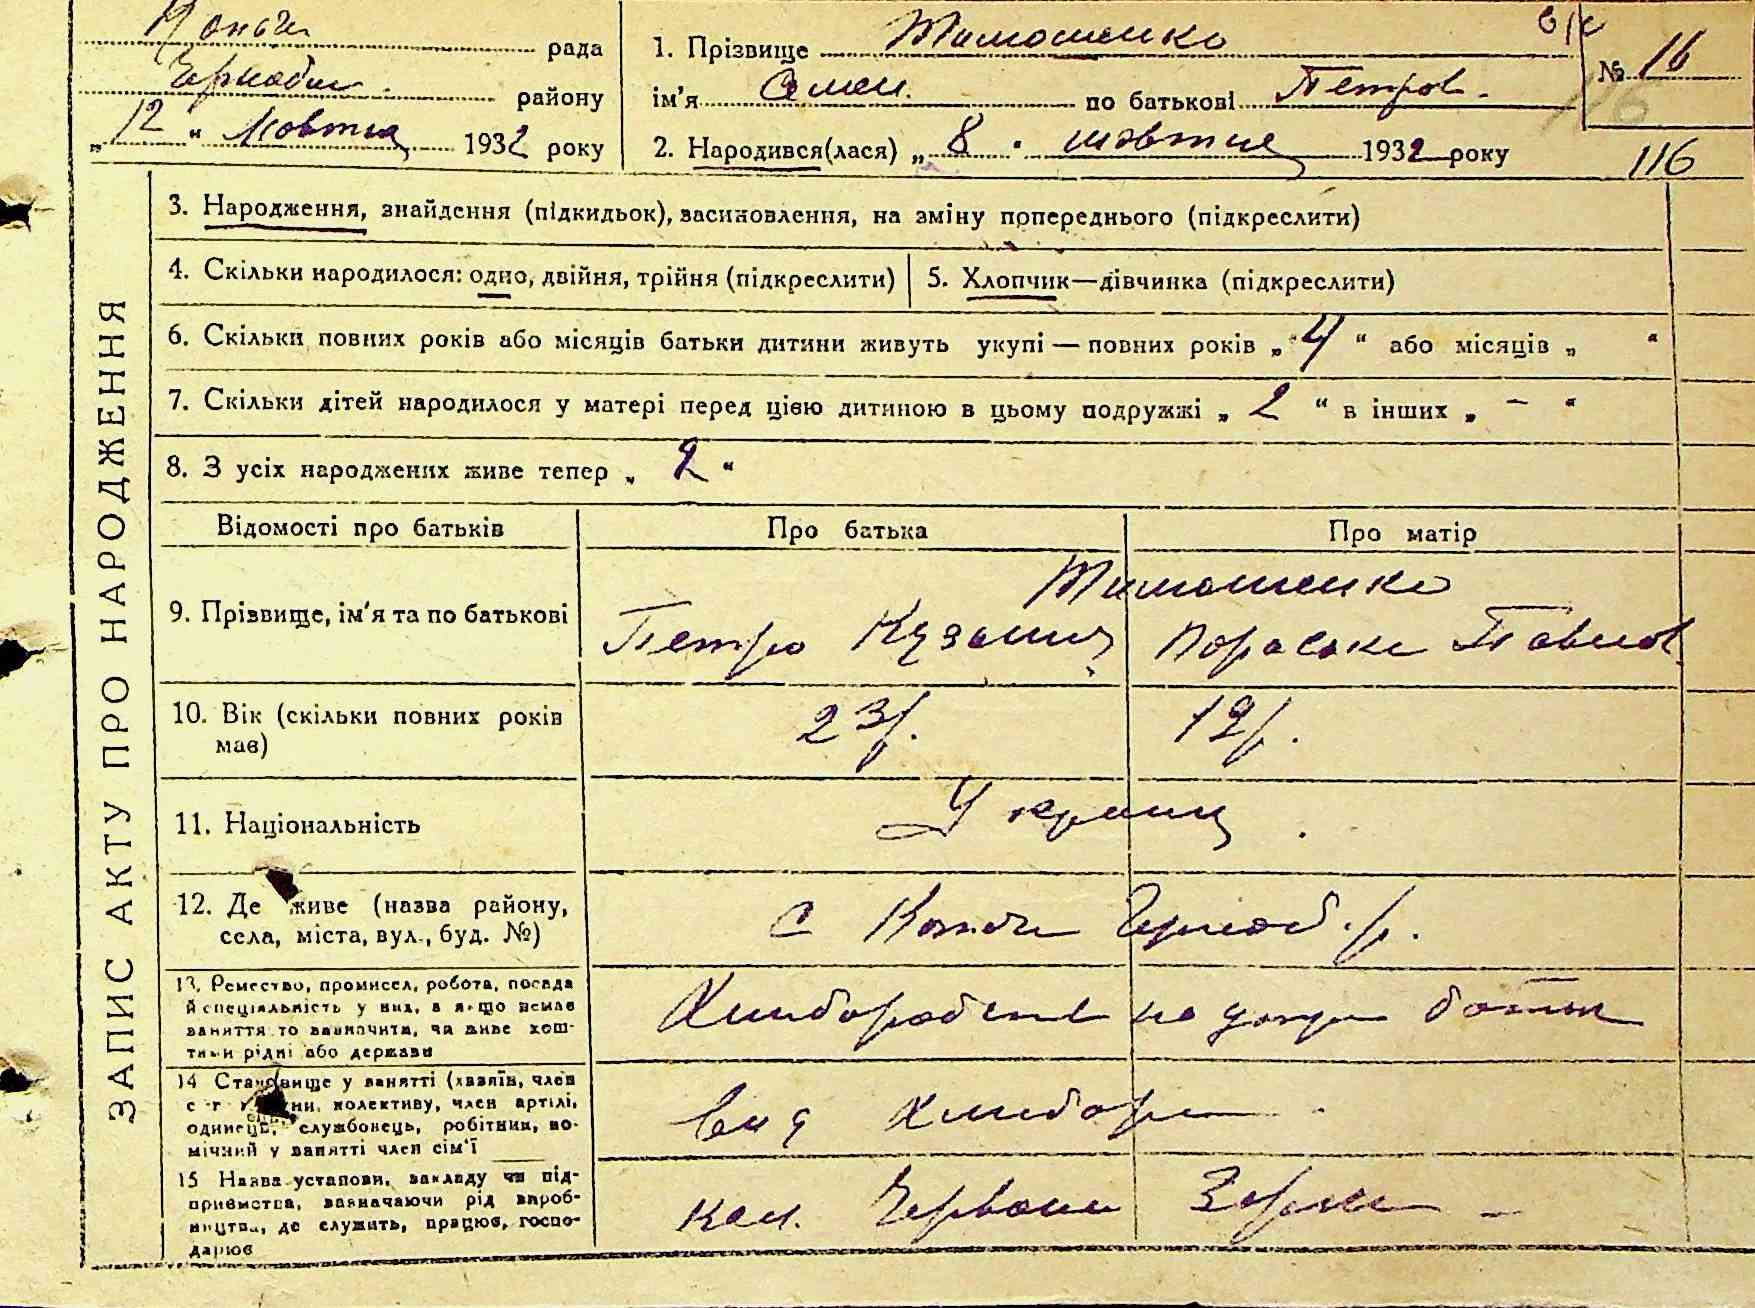 Копачи рада
Чорнобил району
„12“ жовтня 1932 року
1. Прізвище Тимошенко
ім'я Семен по батькові Петров.
2. Народився(лася) „8“ жовтня 1932 року
в/с
№ 16
16
116
ЗАПИС АКТУ ПРО НАРОДЖЕННЯ
3. Народження, знайдення (підкидьок), засиновлення, на зміну попереднього (підкреслити)
4. Скільки народилося: одно, двійня, трійня (підкреслити)
5. Хлопчик—дівчинка (підкреслити)
6. Скільки повних років або місяців батьки дитини живуть укупі — повних років „4“ або місяців „ “
7. Скільки дітей народилося у матері перед цією дитиною в цьому подружжі „2“ в інших „–“
8. З усіх народжених живе тепер „2“
Відомості про батьків Про батька Про матір
Тимошенко
9. Прізвище, ім'я та по батькові Петро Кузьмич Параска Павлов.
10. Вік (скільки повних років 23 р.
має)
11. Національність Украинц.
12. Де живе (назва району, с Копачи Чорноб. р.
села, міста, вул., буд. №)
13. Ремество, промисел, робота, посада
й спеціяльність у них, а якщо немає
заняття то зазначити, чи живе кош-
тами рідні або держави
14 Становище у занятті (хазяїн, член
с-г комуни, колективу, член артілі,
одинець, службовець, робітник, по-
мічний у занятті член сім'ї
15 Назва установи, закладу чи під- кол. Червона Зорка –
приємства, зазначаючи рід вироб-
ництва, де служить, працює, госпо-
дарює